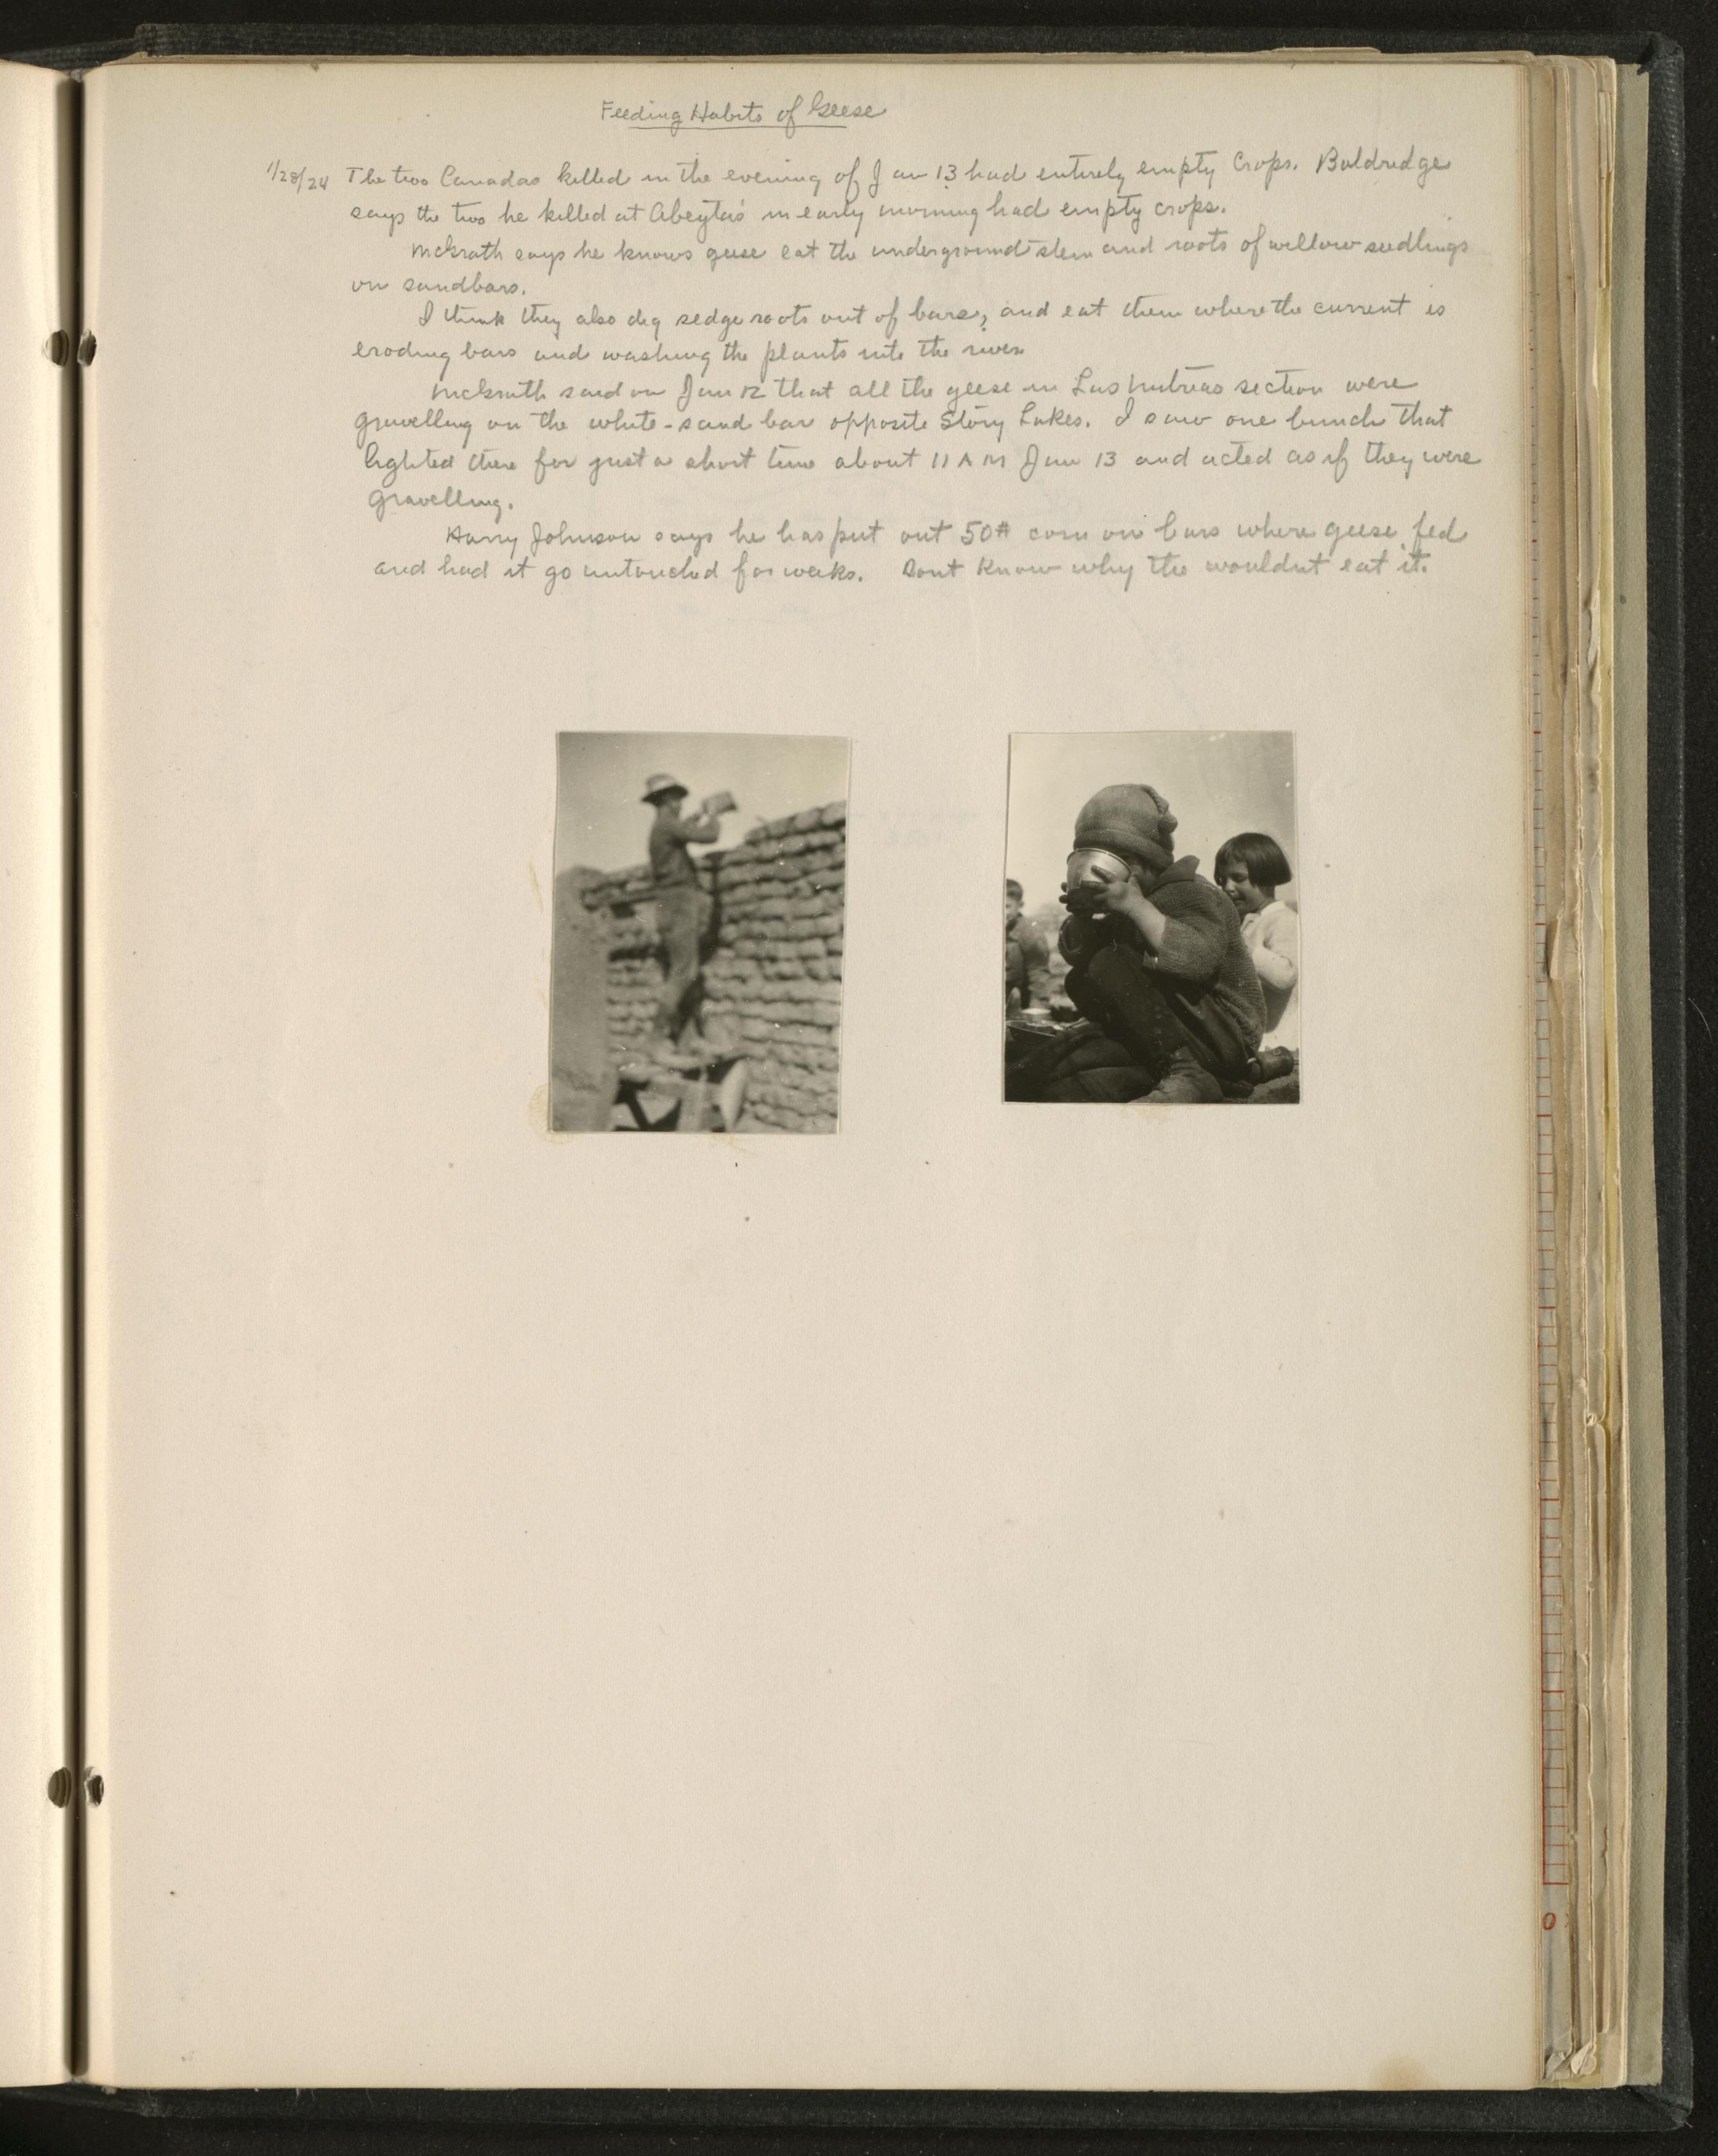 Feeding Habits of Geese
1/28/24 The two Canadas killed in the evening of Jan 13 had entirely empty crops. Baldredge
says the two he killed at Abeyta's in early morning had empty crops.
McGrath says he knows geese eat the underground stem and roots of willow seedlings
on sandbars.
I think they also dig sedge roots out of bars, and eat them where the current is
eroding bars and washing the plants into the river
McGrath said on Jan 12 that all the geese in Las Nutrias section were
gravelling on the white-sand bar opposite Story Lakes. I saw one bunch that
lighted there for just a short time about 11 AM Jan 13 and acted as if they were
gravelling.
Harry Johnson says he has put out 50# corn on bars where geese fed
and had it go untouched for weeks. Dont know why the wouldnt eat it.
0